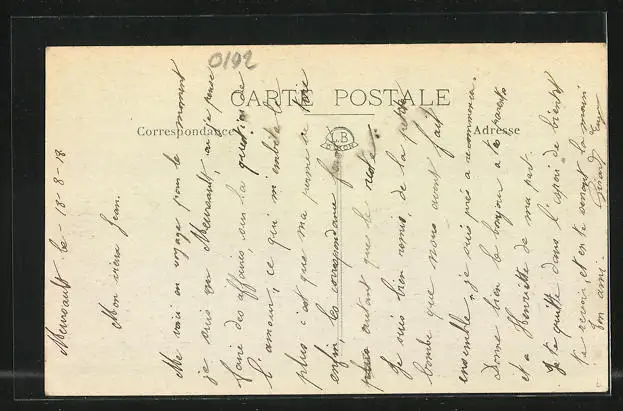 0192
CARTE POSTALE
Correspondance
Adresse
Meursault le - 18-8-18
Mon vieux Jean.
Me voici en voyage pour le moment
je suis en Meursault, ou je pense
faire des affaires, sur la question de
l'amour, ce qui m'embête le
plus c'est que ma permette tire
enfin, la correspondance fera
autant que le reste.
Je suis bien remis, de la petite
bombe que nous avons fait
ensemble, je suis près a recommencer.
donne bien le bonjour a tes parents
et a Henriette de ma part.
Je te quitte dans l'espoir de bientôt
te revoir et en te serrant la main
Ton ami.